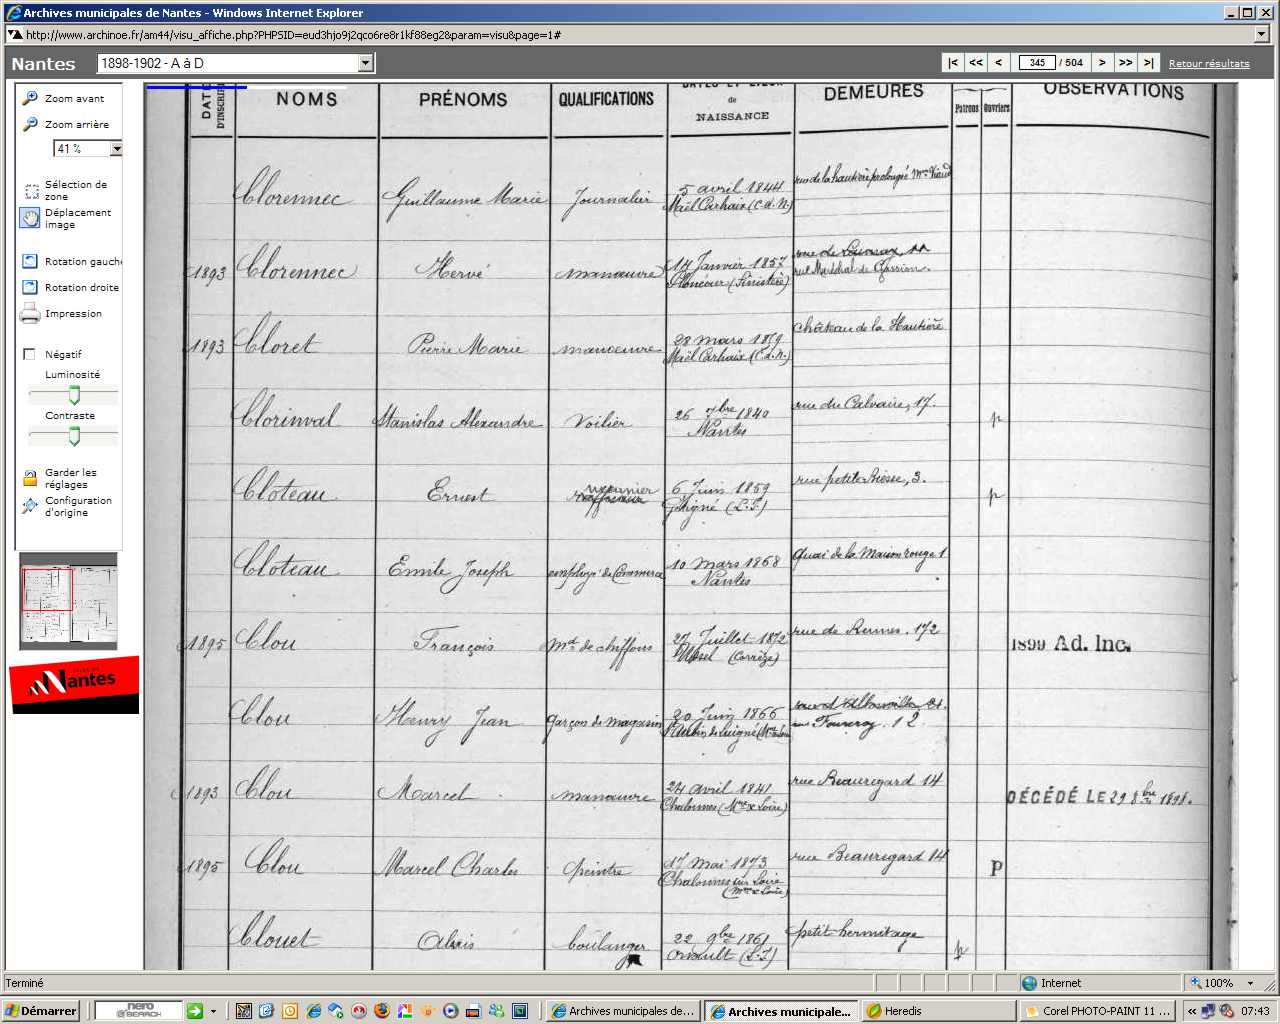 Archives municipales de Nantes - Windows Internet Explorer
http://www.archinoe.fr/am44/visu_affiche.php?PHPSID=eud3hjo9j2qco6re8r1kf88eg2&param=visu&page=1#
Nantes 1898-1902 - A à D |< << < 345 / 504 > >> >| Retour résultats
Zoom avant
Zoom arrière
41 %
Sélection de
zone
Déplacement
image
Rotation gauche
Rotation droite
Impression
Négatif
Luminosité
Contraste
Garder les
réglages
Configuration
d'origine
Nantes
DATE D'INSCRI NOMS PRÉNOMS QUALIFICATIONS de NAISSANCE DEMEURES Patrons Ouvriers OBSERVATIONS
Clorennec Guillaume Marie Journalier 5 avril 1844 rue de la hautière prolongée
Maël Carhaix (C.d.N.)
1893 Clorennec Hervé manœuvre 14 Janvier 1857
(Finistère) rue Maréchal de Gassion.
1893 Cloret Pierre Marie manœuvre 28 mars 1879 château de la Hautière
Maël Carhaix (C.d.N.)
Clorinval Stanislas Alexandre Voilier 26 7bre 1840 rue du Calvaire, 17. p
Nantes
Cloteau Ernest meunier 6 Juin 1859 rue petite Biesse, 3. p
(L.I.)
Cloteau Emile Joseph employé de Commerce 10 mars 1868 quai de la Maison rouge 1
Nantes
1895 Clou François Md de chiffons 27 Juillet 1872 rue de Rennes. 172 1899 Ad. Inc.
Ussel (Corrèze)
Clou Henry Jean garçon de magasin 20 Juin 1866
rue Fourcroy. 12.
1893 Clou Marcel manœuvre 24 avril 1841 rue Beauregard 14 DÉCÉDÉ LE 29 8bre 1898.
Chalonnes (Mne & Loire)
1895 Clou Marcel Charles peintre 17 mai 1873 rue Beauregard 14 P
Chalonnes sur Loire
(Mne & Loire)
Clouet Alexis boulanger 22 9bre 1861 petit hermitage p
Orvault (L.I)
Terminé Internet 100%
Démarrer nero SEARCH Archives municipales de... Archives municipale... Heredis Corel PHOTO-PAINT 11 ... 07:43